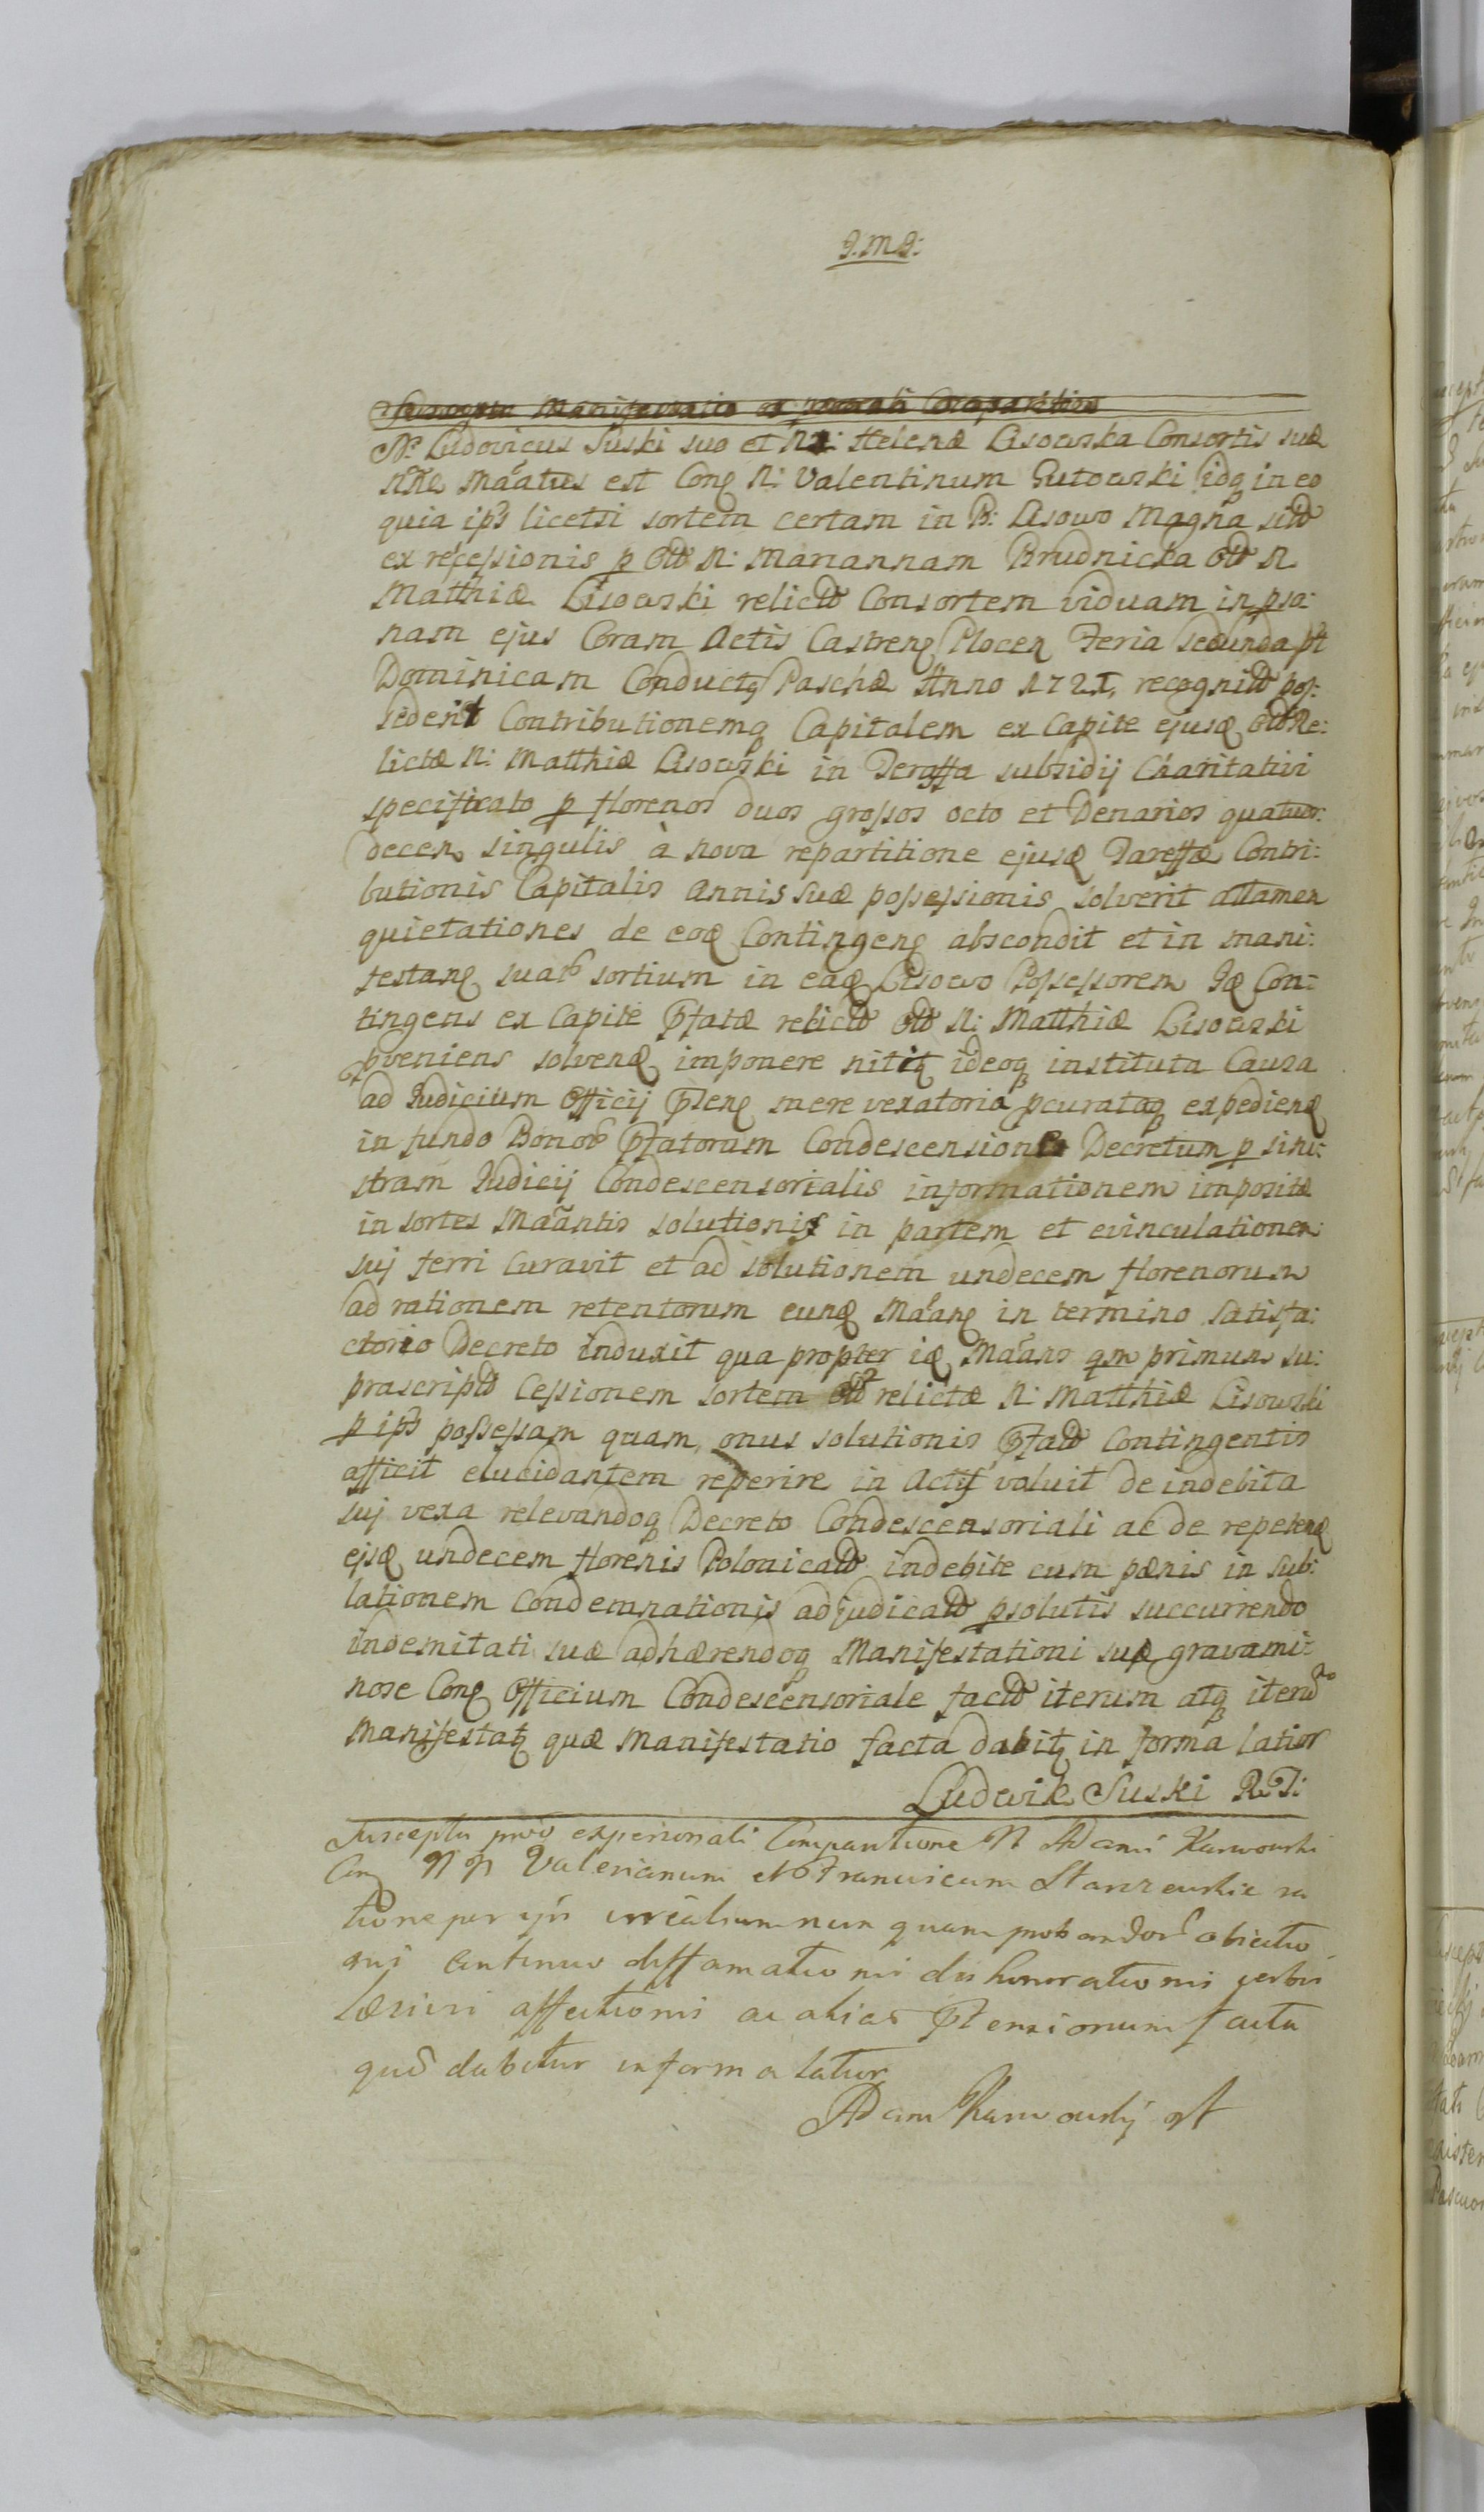 J.M.J:
Suscepta Manifestatio ex personali Comparitione
N: Ludovicus Suski suo et N: Helenæ Lisowska Consortis suæ
nne Ma͠atus est Cong N: Valentinum Gutowski idq in eo
quia ips licetsi sortem certam in B: Lisowo Magna sitt
ex recessionis p Ott N: Mariannam Brudnicka Ott N
Matthiæ Lisowski relictt Consortem viduam in pso:
nam ejus Coram Actis Castreng Plocen Feria secunda pt
Dominicam Conductg Paschæ Anno 1721, recognitt pos:
sederit Contributionemq Capitalem ex Capite ejusq ottRe:
lictæ N: Matthiæ Lisowski in Teraffa subsidij Charitativi
specificato p florenos duos grossos octo et Denarios quatuor:
decem singulis à nova repartitione ejusq Tareffæ Contri:
butionis Capitalis annis suæ possessionis solverit attamen
quietationes de eoq Contingeng abscondit et in mani:
festang suarb sortium in eaq Lisowo Possessorem Iq Con:
tingens ex Capite Ptatæ relictt Ott N: Matthiæ Lisowski
pveniens solvenq imponere nititq ideoq instituta Causa
ad Judicium Officij Pseng mere vexatoria pcurataq expedienq
in fundo Bonorb Pfatorum Condescensione Decretum p sini:
stram Judicij Condescensorialis informationem impositæ
in sortes Ma͠antis solutionis in partem et evinculationem
suj ferri curavit et ad solutionem undecem florenorum
ad rationem retentorum eunq Ma͠ang in termino satisfa:
ctorio Decreto induxit qua propter iq Ma͠ans qm primum su:
prascriptt Cessionem sortem ott relictæ N: Matthiæ Lisowski
p ips possessam quam onus solutionis Pfatt Contingentis
afficit elucidantem reperire in Actis voluit de indebita
suj vexa relevandoq Decreto Condescensoriali ac de repetenq
ejsq undecem florenis Polonicatt indebite cum pænis in sub:
lationem Condemnationis adjudicatt psolutis succurrendo
indemitati suæ adhærendoq Manifestationi suæ gravami:
nose Cong Officium Condescensoriale factt iterum atq iterdo
Manifestatq quæ Manifestatio facta dabitq in forma latior
Ludwik Suski R.T:
Suscepta pnio expersonali Comparitione N Adami Karwowski
Cong N N Valerianum et Franciscum Starzewskie ra
tione per ijs irrealium nun quam probandor obiectio
nis continuo diffamationis dishonorationis verbis
læsivis affectionis ac alias Ptensionum facta
que dabitur in forma latior
Adam Karwowskij